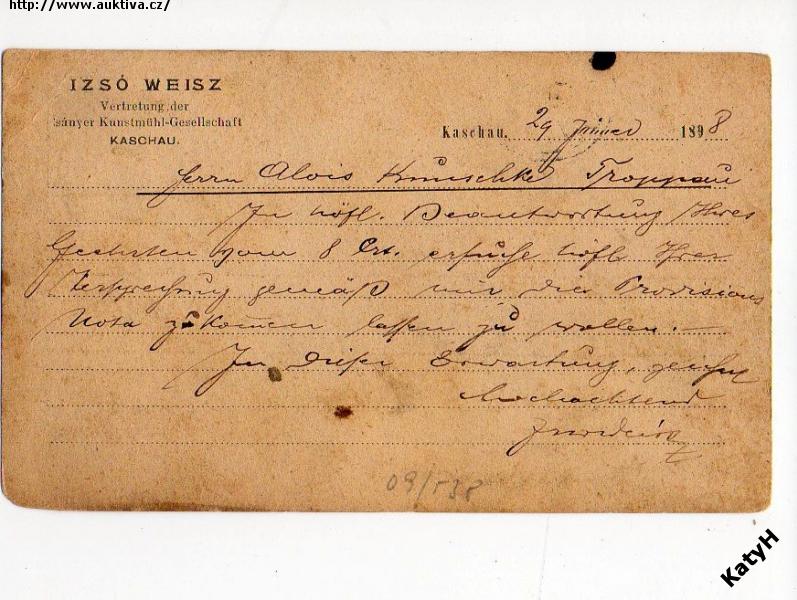 http://www.auktiva.cz/
IZSÓ WEISZ
Vertretung der
isányer Kunstmühl-Gesellschaft
KASCHAU.
Kaschau, 29 Jänner 1898
Herrn Alois Troppau
In höfl. Beantwortung Ihres
Geehrten vom 8 Crt. ersuche höfl. Ihrer
Versprechung gemäß mir die Provisions
Nota zukommen lassen zu wollen. —
In dieser Erwartung, zeichne
Hochachtend
09/
KatyH